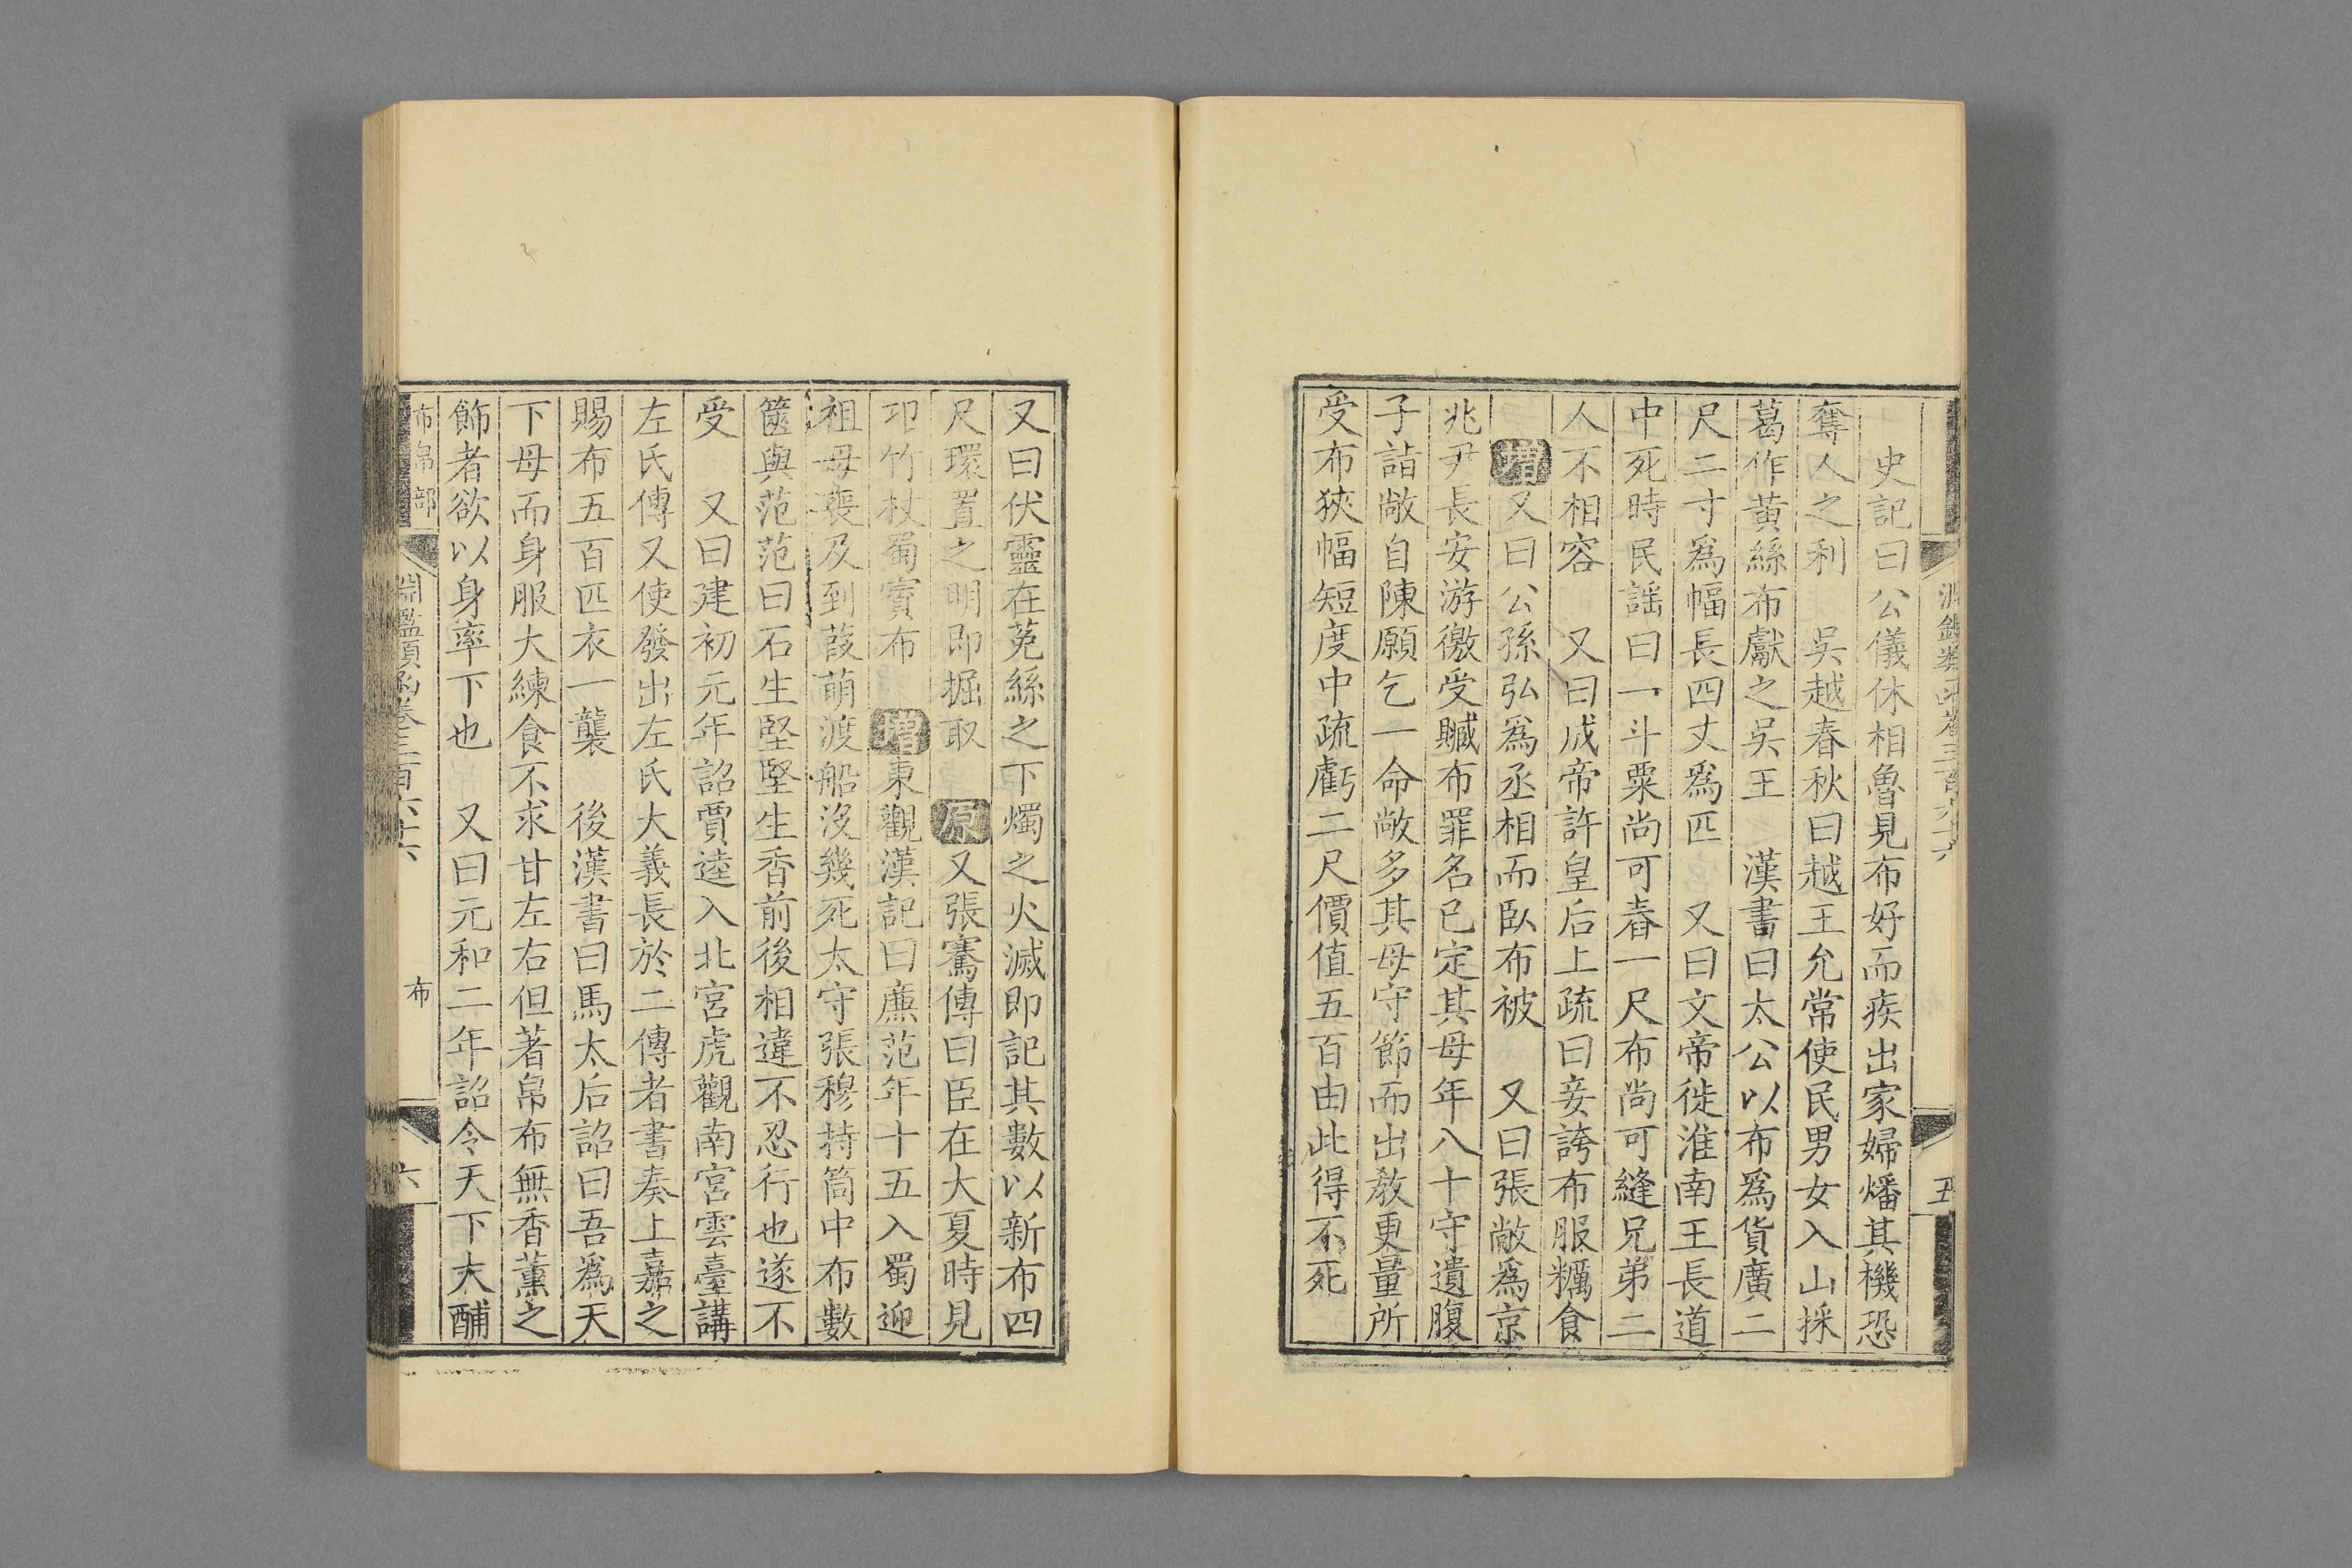 史記曰公儀休相魯見布好而疾出家婦燔其機恐
奪人之利　吳越春秋曰越王允常使民男女入山採
葛作黃絲布獻之吳王　漢書曰太公以布爲貨廣二
尺二寸爲幅長四丈爲匹　又曰文帝徙淮南王長道
中死時民謡曰一斗粟尚可舂一尺布尚可縫兄弟二
人不相容　又曰成帝許皇后上疏曰妾誇布服糲食
增又曰公孫弘爲丞相而臥布被　又曰張敞爲京
兆尹長安游徼受贓布罪名已定其母年八十守遺腹
子詣敞自陳願乞一命敞多其母守節而出教更量所
受布狹幅短度中疏虧二尺價值五百由此得不死
五
又曰伏靈在菟絲之下燭之火滅即記其數以新布四
尺環置之明即掘取　原又張騫傳曰臣在大夏時見
卭竹杖蜀賨布　增東觀漢記曰廉范年十五入蜀迎
祖母喪及到葭萌渡船沒幾死太守張穆持筒中布數
篋與范范曰石生堅堅生香前後相違不忍行也遂不
受　又曰建初元年詔賈逵入北宮虎觀南宮雲臺講
左氏傳又使發出左氏大義長於二傳者書奏上嘉之
賜布五百匹衣一襲　後漢書曰馬太后詔曰吾爲天
下母而身服大練食不求甘左右但著帛布無香薰之
飾者欲以身率下也　又曰元和二年詔令天下大酺
布帛部　淵鑑類函卷三百六十六　布　六